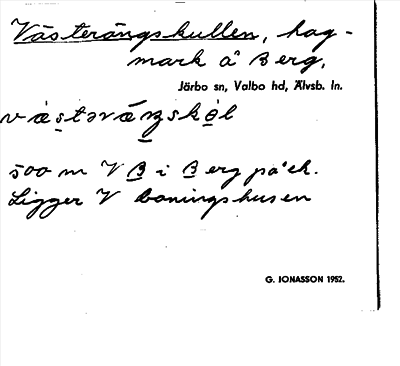 Västerängskullen, hag-
mark å Berg,
Järbo sn, Valbo hd, Älvsb. ln.
500 m V B i Berg på ek.
Ligger V boningshusen
G. IONASSON 1952.